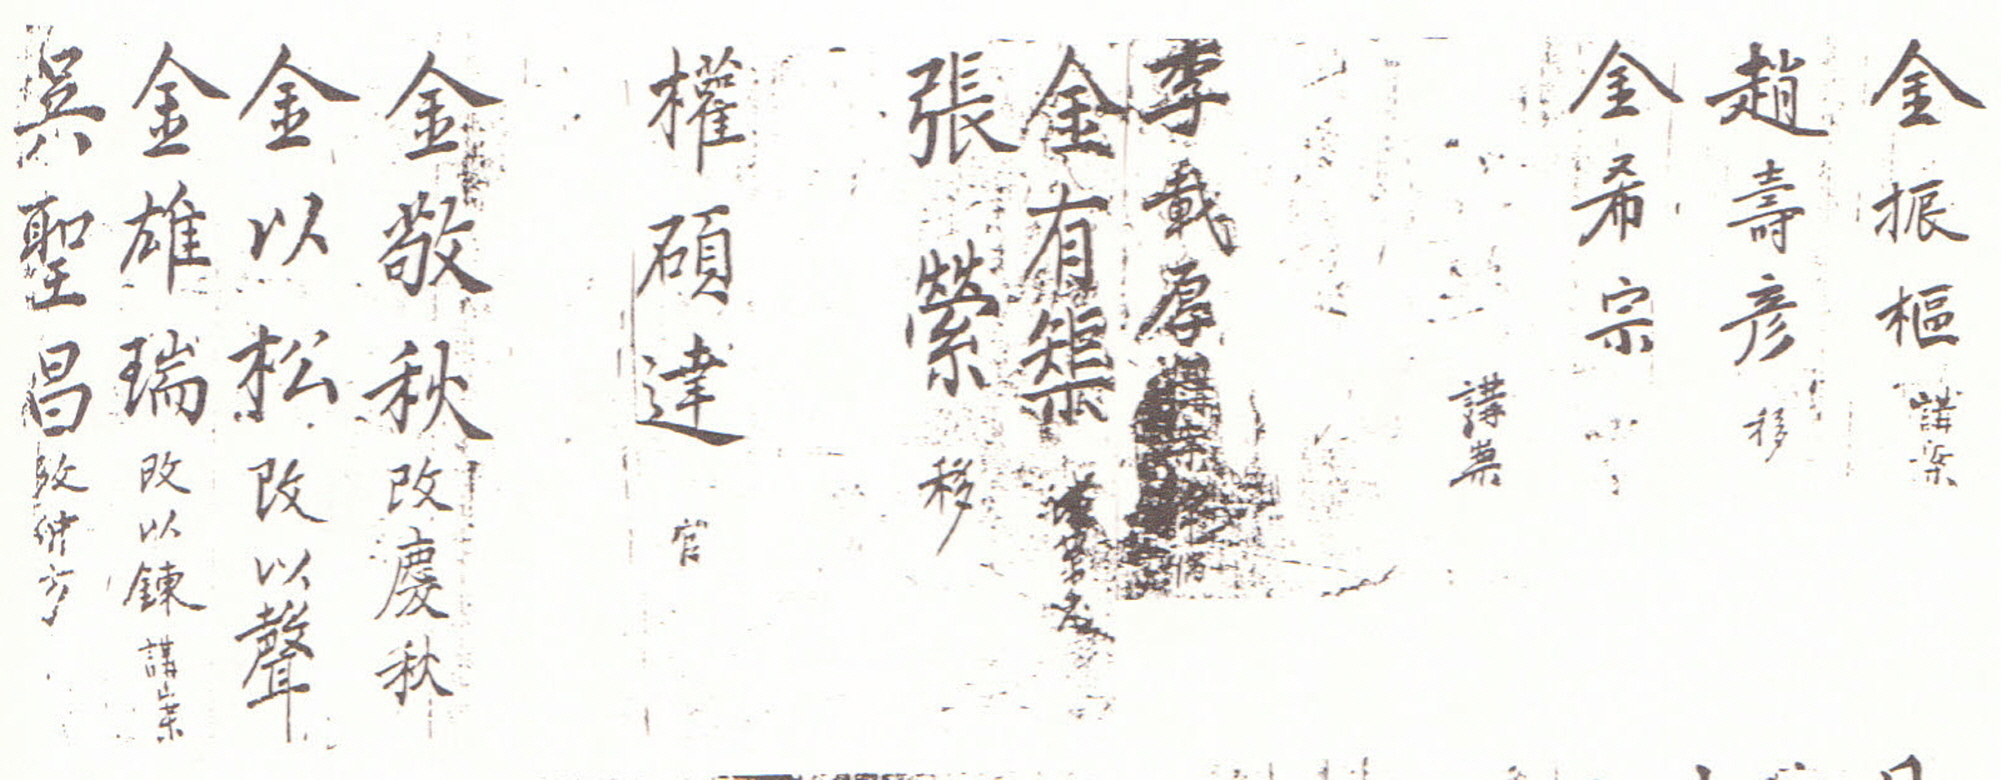 金振樞 講案
趙壽彦 移
金希宗
講案
李載厚
金有榘
張縈 移
權碩達 官
金敬秋 改慶秋
金以松 改以聲
金雄瑞 改以鍊 講案
吳聖昌 改